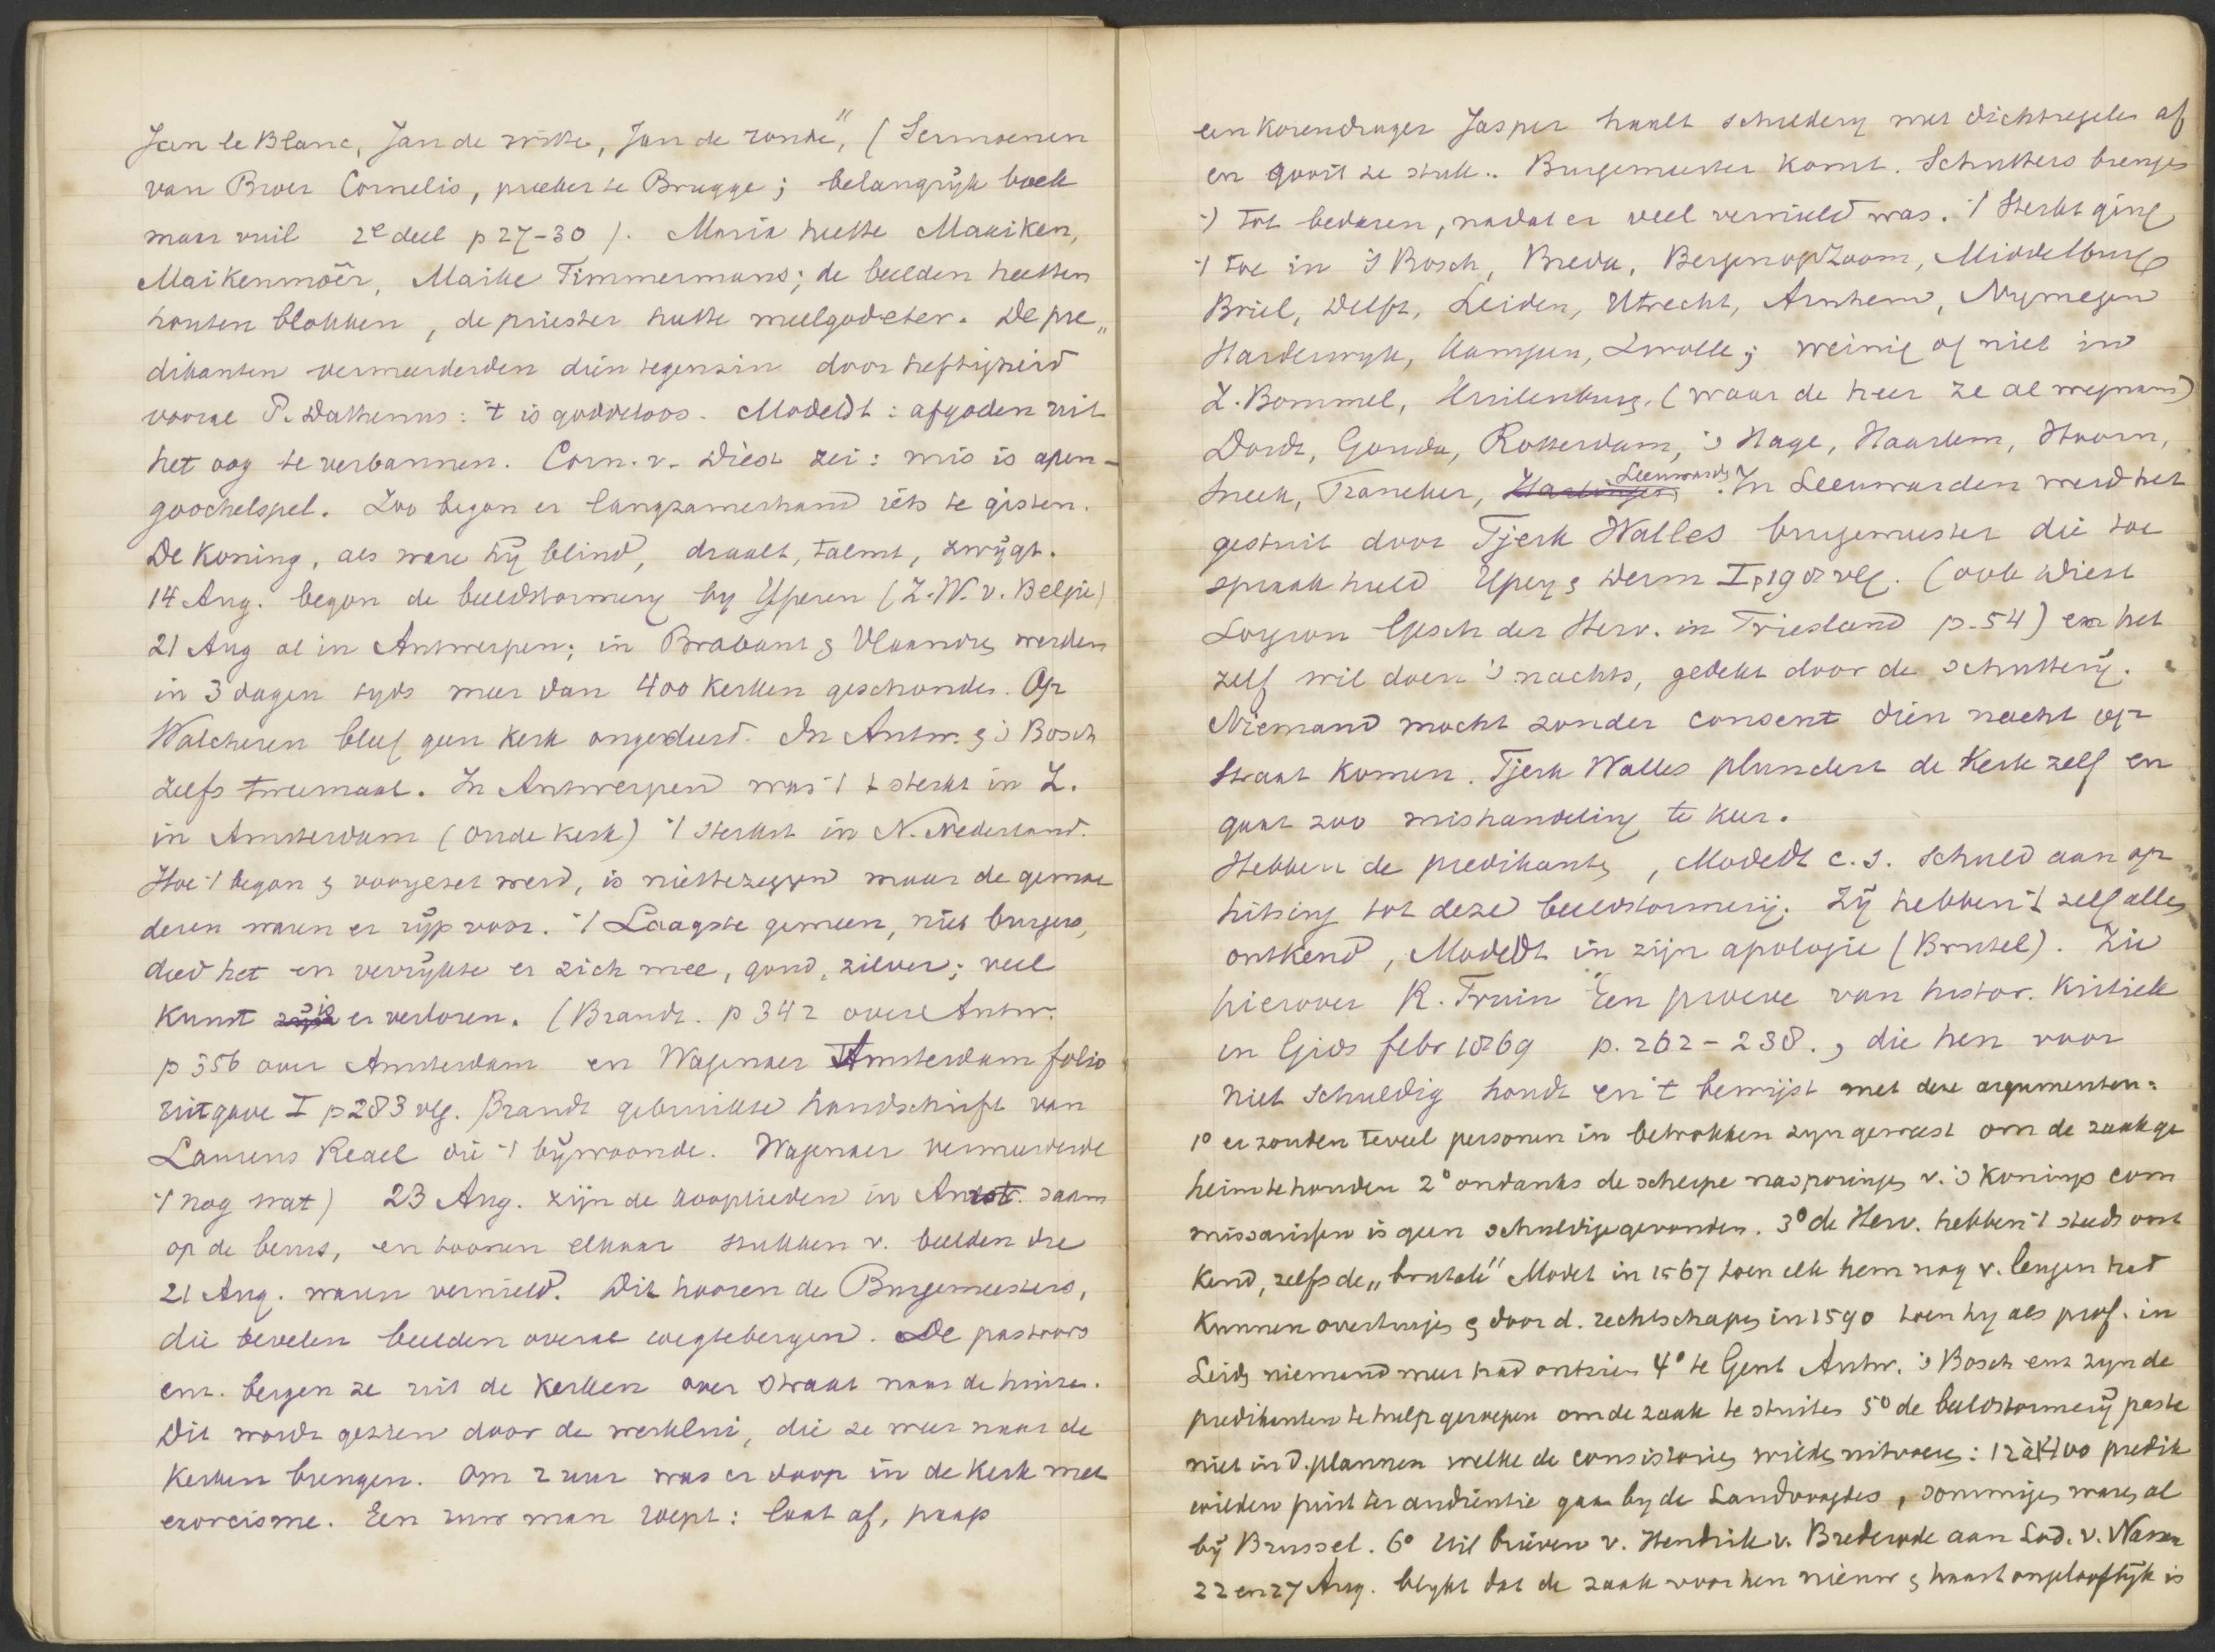 Jan le Blanc, Jan de witte, Jan de ronde", (Sermoenen
van Broer Cornelis, preeker te Brugge; belangrijk boek
maar vuil 2e deel p 27-30). Maria heette Maaiken,
Maikenmoêr, Maike Timmermans; de beelden heetten
houten blokken, de priester heette meelgodeter. De pre„
dikanten vermeerderden dien tegenzin door heftigheid
vooral P. Dathenus: 't is goddeloos. Modedt: afgoden uit
het oog te verbannen. Corn. v. Diest zei: mis is apen-
goochelspel. Zoo begon er langzamerhand iets te gisten.
De Koning, als ware hij blind, draalt, talmt, zwijgt.
14 Aug. begon de beeldstormery by Yperen (Z.W. v. Belgie)
21 Aug al in Antwerpen; in Brabant & Vlaandrn werden
in 3 dagen tyds meer dan 400 Kerken geschonden. Op
Walcheren bleef geen Kerk ongedeerd. In Antw. & 's Bosch
zelfs tweemaal. In Antwerpen was 't 't sterkst in Z.
in Amsterdam (oude Kerk) 't sterkst in N. Nederland.
Hoe 't begon & voorgezet werd, is niet te zeggen maar de gemoe
deren waren er rijp voor. 't Laagste gemeen, niet burgers,
deed het en verrijkte er zich mee, goud, zilver; veel
Kunst is er verloren. (Brandt. p 342 over Antw.
p 356 over Amsterdam en Wagenaer Amsterdam folio
uitgave I p 283 vlg. Brandt gebruikte handschrift van
Laurens Reael die 't bijwoonde. Wagenaer vermeerderde
't nog wat) 23 Aug. zijn de kooplieden in Amst. saam
op de beurs, en toonen elkaar stukken v. beelden die
21 Aug. waren vernield. Dit hooren de Burgemeesters,
die bevelen beelden overal weg te bergen. De pastoors
enz. bergen ze uit de Kerken over straat naar de huizen.
Dit wordt gezien door de werklui, die ze weer naar de
Kerken brengen. Om 2 uur was er doop in de Kerk met
exorcisme. Een ruw man roept: laat af, paap
een Korendrager Jasper haalt schildery met dichtregelen af
en gooit ze stuk.. Burgemeester Komt. Schutters brengen
't tot bedaren, nadat er veel vernield was. 't Sterkst ging
't toe in 's Bosch, Breda, Bergen op Zoom, Middelburg
Briel, Delft, Leiden, Utrecht, Arnhem, Nymegen
Harderwyk, Kampen, Zwolle; weinig of niet in
Z. Bommel, Kuilenburg, (waar de heer ze al wegnam)
Dordt, Gouda, Rotterdam, 's Hage, Haarlem, Hoorn,
Sneek, Franeker, Harlingen Leeuwardn. In Leeuwarden werd het
gestuit door Tjerk Walles burgemeester die toe
spraak hield Ypey & Derm I p 190 vlg. (ook Diest
Lorgion Gesch der Herv. in Friesland p. 54) en het
zelf wil doen 's nachts, gedekt door de schutterij.
Niemand mocht zonder consent dien nacht op
straat komen. Tjerk Walles plundert de Kerk zelf en
gaat zoo mishandeling te keer.
Hebben de predikantn, Modedt c.s. schuld aan op
hitsing tot deze beeldstormerij. Zij hebben 't zelf alles
ontkend, Modedt in zijn apologie (Brutel). Zie
hierover R. Fruin "Een proeve van histor. Kritiek
in Gids febr 1869 p. 262-238., die hen voor
niet schuldig houdt en 't bewijst met deze argumenten:
1° er zouden teveel personen in betrokken zyn geweest om de zaak ge
heim te houden 2° ondanks de scherpe nasporingn v. 's Konings com
missarissen is geen schuldige gevonden. 3° de Herv. hebben 't steeds ont
kend, zelfs de „brutale" Modet in 1567 toen elk hem nog v. leugen had
kunnen overtuign & door d. rechtschapn in 1590 toen hy als prof. in
Leidn niemand meer had ontzien 4° te Gent Antw. 's Bosch enz zyn de
predikanten te hulp geroepen om de zaak te stuiten 5° de beeldstormerij paste
niet in d. plannen welke de consistories wilden uitvoern: 12 à 1400 predik
wilden juist ter audientie gaan by de Landvoogdes, sommign waren al
bij Brussel. 6° Uit brieven v. Hendrik v. Brederode aan Lod. v. Nassau
22 en 27 Aug. blykt dat de zaak voor hen nieuw & haast ongelooflijk is